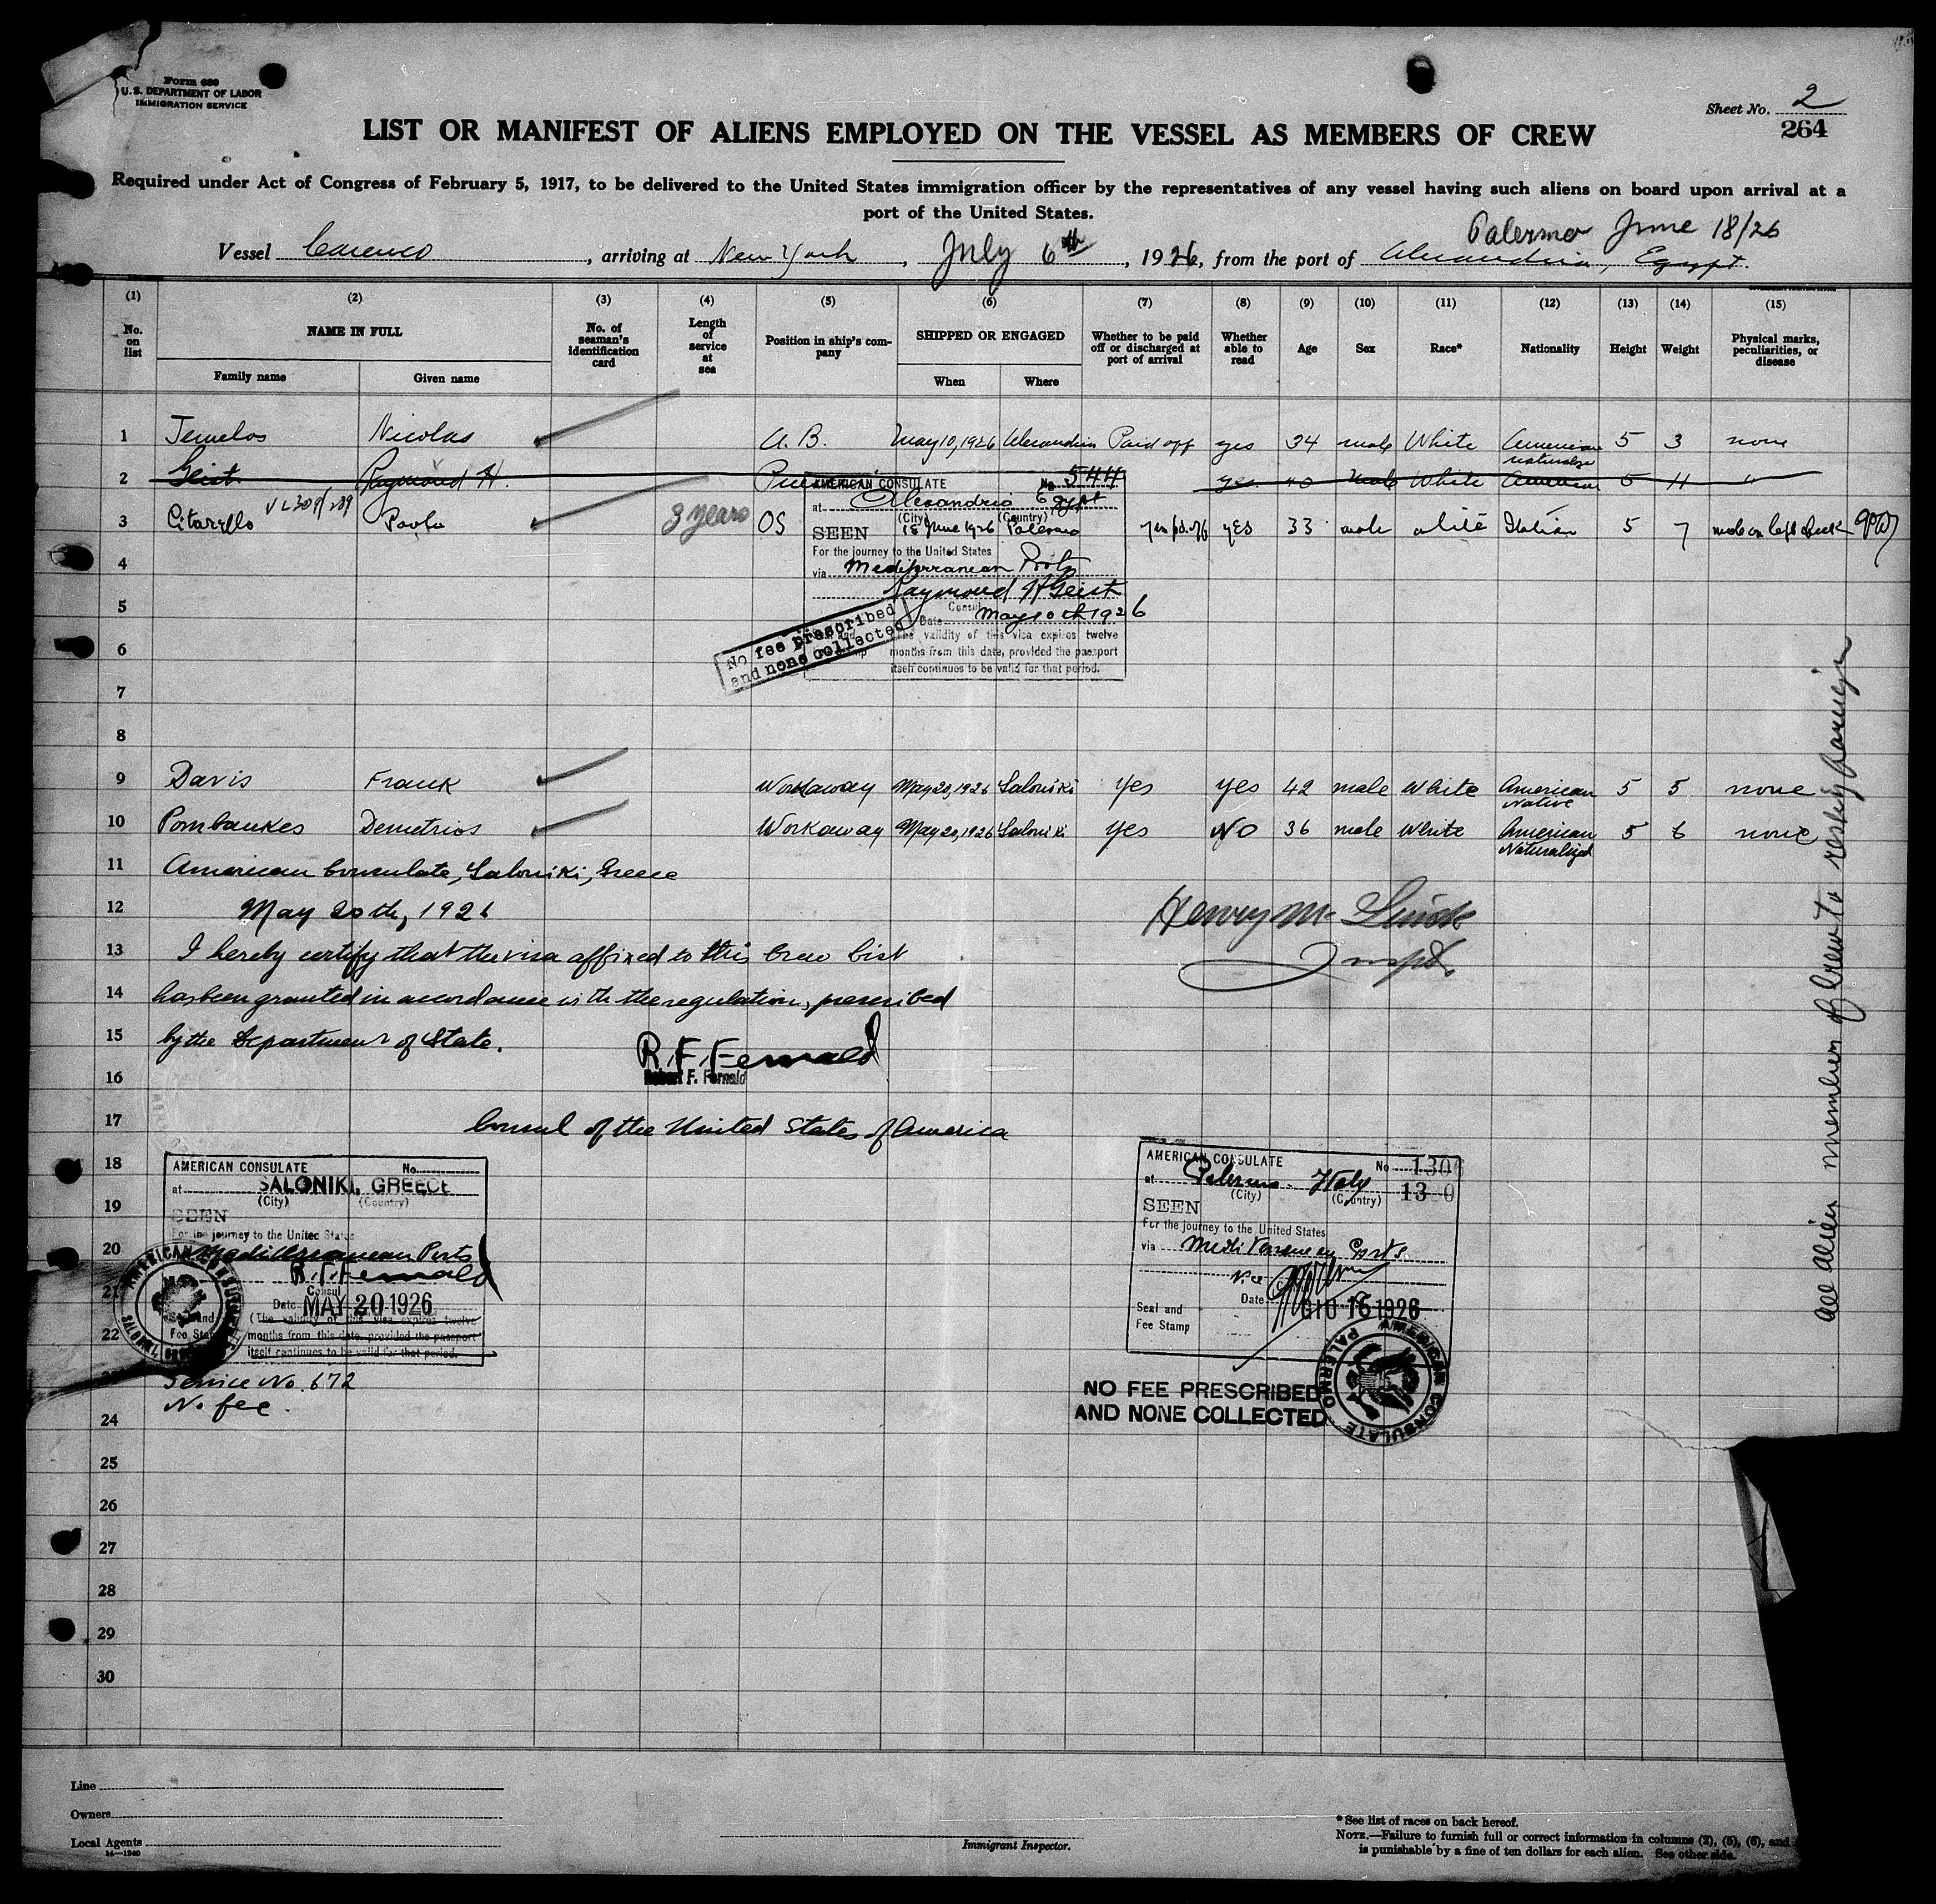 Form 680
U. S. DEPARTMENT OF LABOR
IMMIGRATION SERVICE
Sheet No. 2
264
LIST OR MANIFEST OF ALIENS EMPLOYED ON THE VESSEL AS MEMBERS OF CREW
Required under Act of Congress of February 5, 1917, to be delivered to the United States immigration officer by the representatives of any vessel having such aliens on board upon arrival at a
port of the United States.
Palermo June 18/26
Vessel , arriving at New York, July 6th, 1926, from the port of Alexandria, Egypt.
(1) (2) (3) (4) (5) (6) (7) (8) (9) (10) (11) (12) (13) (14) (15)
No. on list NAME IN FULL No. of seaman's identification card Length of service at sea Position in ship's company SHIPPED OR ENGAGED Whether to be paid off or discharged at port of arrival Whether able to read Age Sex Race* Nationality Height Weight Physical marks, peculiarities, or disease
Family name Given name When Where
1 Nicolas A. B. May 10, 1926 Alexandria Paid off yes 34 male White American 5 3 none
naturalize
2 Geist Raymond H. yes 40 male White American 5 11 "
3 Citarello Paolo 3 years OS 18 June 1926 Palermo yes pd. off yes 33 male white Italian 5 7 mole on left cheek
AMERICAN CONSULATE No. 544
at Alexandria Egypt
(City) (Country)
SEEN
For the journey to the United States
via Mediterranean Ports
Raymond H Geist
Consul
Date May 10th 1926
The validity of this visa expires twelve
months from this date, provided the passport
itself continues to be valid for that period.
No fee prescribed
and none collected
4
5
6
7
8
9 Davis Frank Workaway May 20, 1926 Saloniki Yes Yes 42 male White American 5 5 none
Native
10 Pombaukes Demetrios Workaway May 20, 1926 Saloniki Yes No 36 male White American 5 6 none
Naturalized
11 American Consulate, Saloniki, Greece
12 May 20th, 1926
Henry M.
Inspt.
13 I hereby certify that the visa affixed to this Crew List
14 has been granted in accordance with the regulations prescribed
15 by the Department of State.
R. F. Fernald
16 Robert F. Fernald
17 Consul of the United States of America
18
AMERICAN CONSULATE No.
at SALONIKI, GREECE
(City) (Country)
19
SEEN
For the journey to the United States
20 Mediterranean Ports
R. F. Fernald
Consul
21 Date MAY 20 1926
(The validity of this visa expires twelve
22 months from this date, provided the passport
itself continues to be valid for that period.
Seal and
Fee Stamp
AMERICAN CONSULATE
SALONIKI
Service No. 672
No fee.
AMERICAN CONSULATE No. 130
at Palermo Italy 1300
(City) (Country)
SEEN
For the journey to the United States
via Mediterranean Ports
Vice
Date GIU 16 1926
Seal and
Fee Stamp
NO FEE PRESCRIBED
AND NONE COLLECTED
AMERICAN CONSULATE
PALERMO
All alien members of Crew to reship foreign
24
25
26
27
28
29
30
Line
Owners
Local Agents
14—1240
Immigrant Inspector.
*See list of races on back hereof.
NOTE.—Failure to furnish full or correct information in columns (2), (5), (6), and
is punishable by a fine of ten dollars for each alien. See other side.